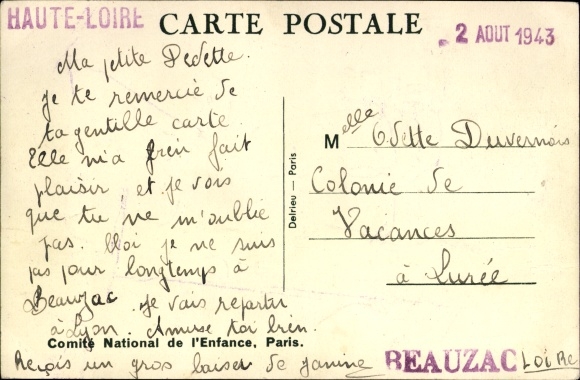 HAUTE-LOIRE
CARTE POSTALE
2 AOUT 1943
Ma petite Dedette.
Je te remercie de
ta gentille carte.
Elle m'a bien fait
plaisir, et je vois
que tu ne m'oublie
pas. Moi je ne suis
pas pour longtemps à
Beauzac. Je vais repartir
à Lyon. Amuse toi bien.
Comité National de l'Enfance, Paris.
Reçois un gros baiser de Janine
Delrieu — Paris
Melle Odette Duvernois
Colonie de
Vacances
à Lurée
BEAUZAC LOIRE